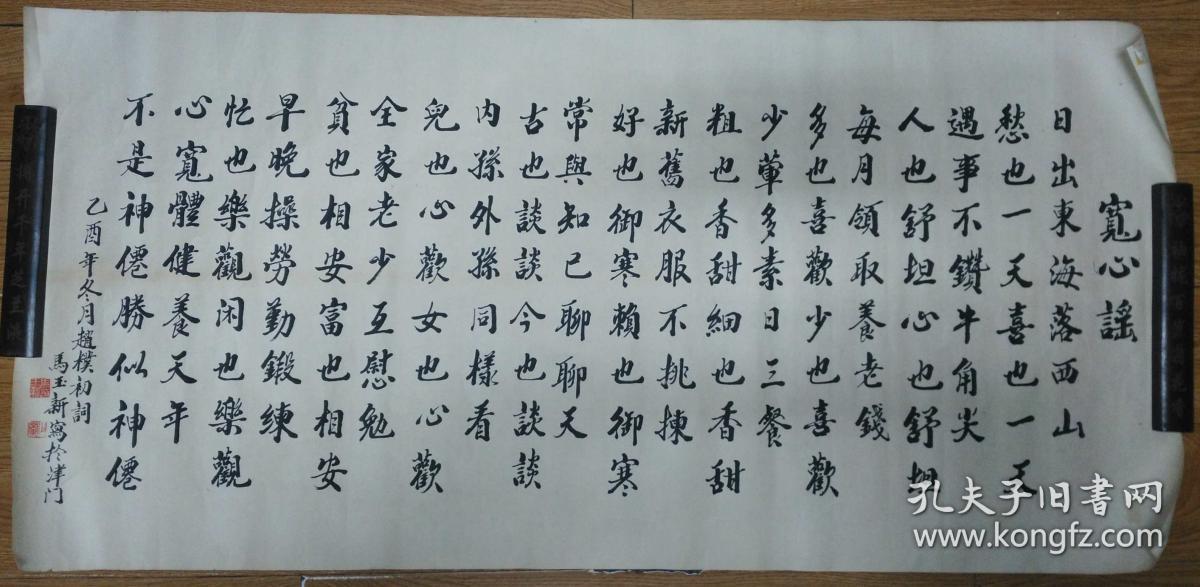 寬心謠
日出東海落西山
愁也一天喜也一天
遇事不鑽牛角尖
人也舒坦心也舒坦
每月領取養老錢
多也喜歡少也喜歡
少葷多素日三餐
粗也香甜細也香甜
新舊衣服不挑揀
好也御寒賴也御寒
常與知己聊聊天
古也談談今也談談
内孫外孫同樣看
兒也心歡女也心歡
全家老少互慰勉
貧也相安富也相安
早晚操勞勤鍛練
忙也樂觀闲也樂觀
心寬體健養天年
不是神僊勝似神僊
乙酉年冬月趙樸初詞
馬玉新寫於津门
孔夫子旧书网
www.kongfz.com